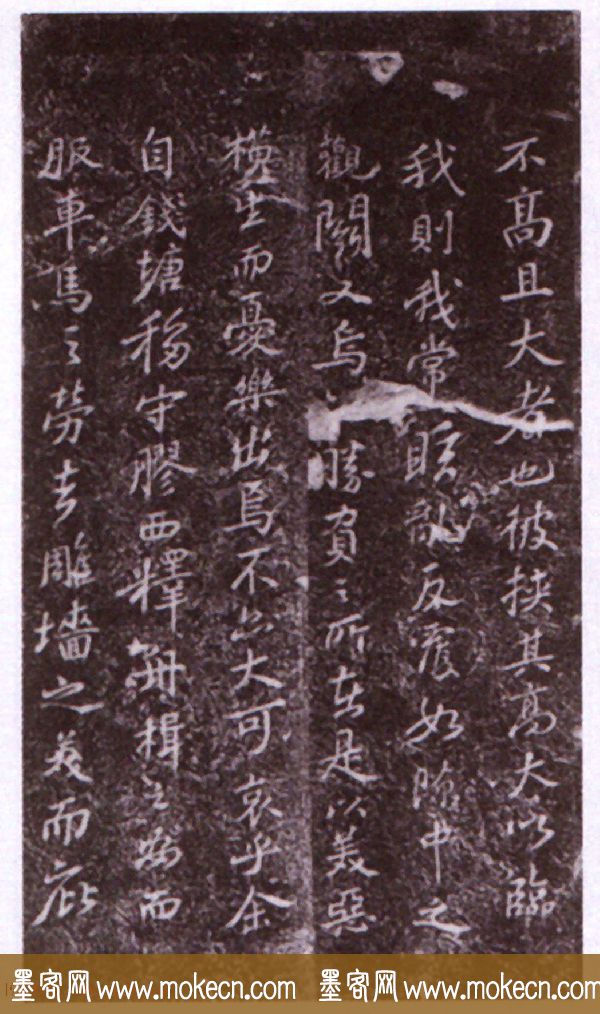 不高且大者也彼挾其高大以臨
我則我常眩亂反覆如隙中之
觀鬭又烏勝負之所在是以美惡
橫生而憂樂出焉不亦大可哀乎余
自錢塘移守膠西釋舟楫之安而
服車馬之勞去雕墻之美而庇
墨客网 www.mokecn.com 墨客网 www.mokecn.com